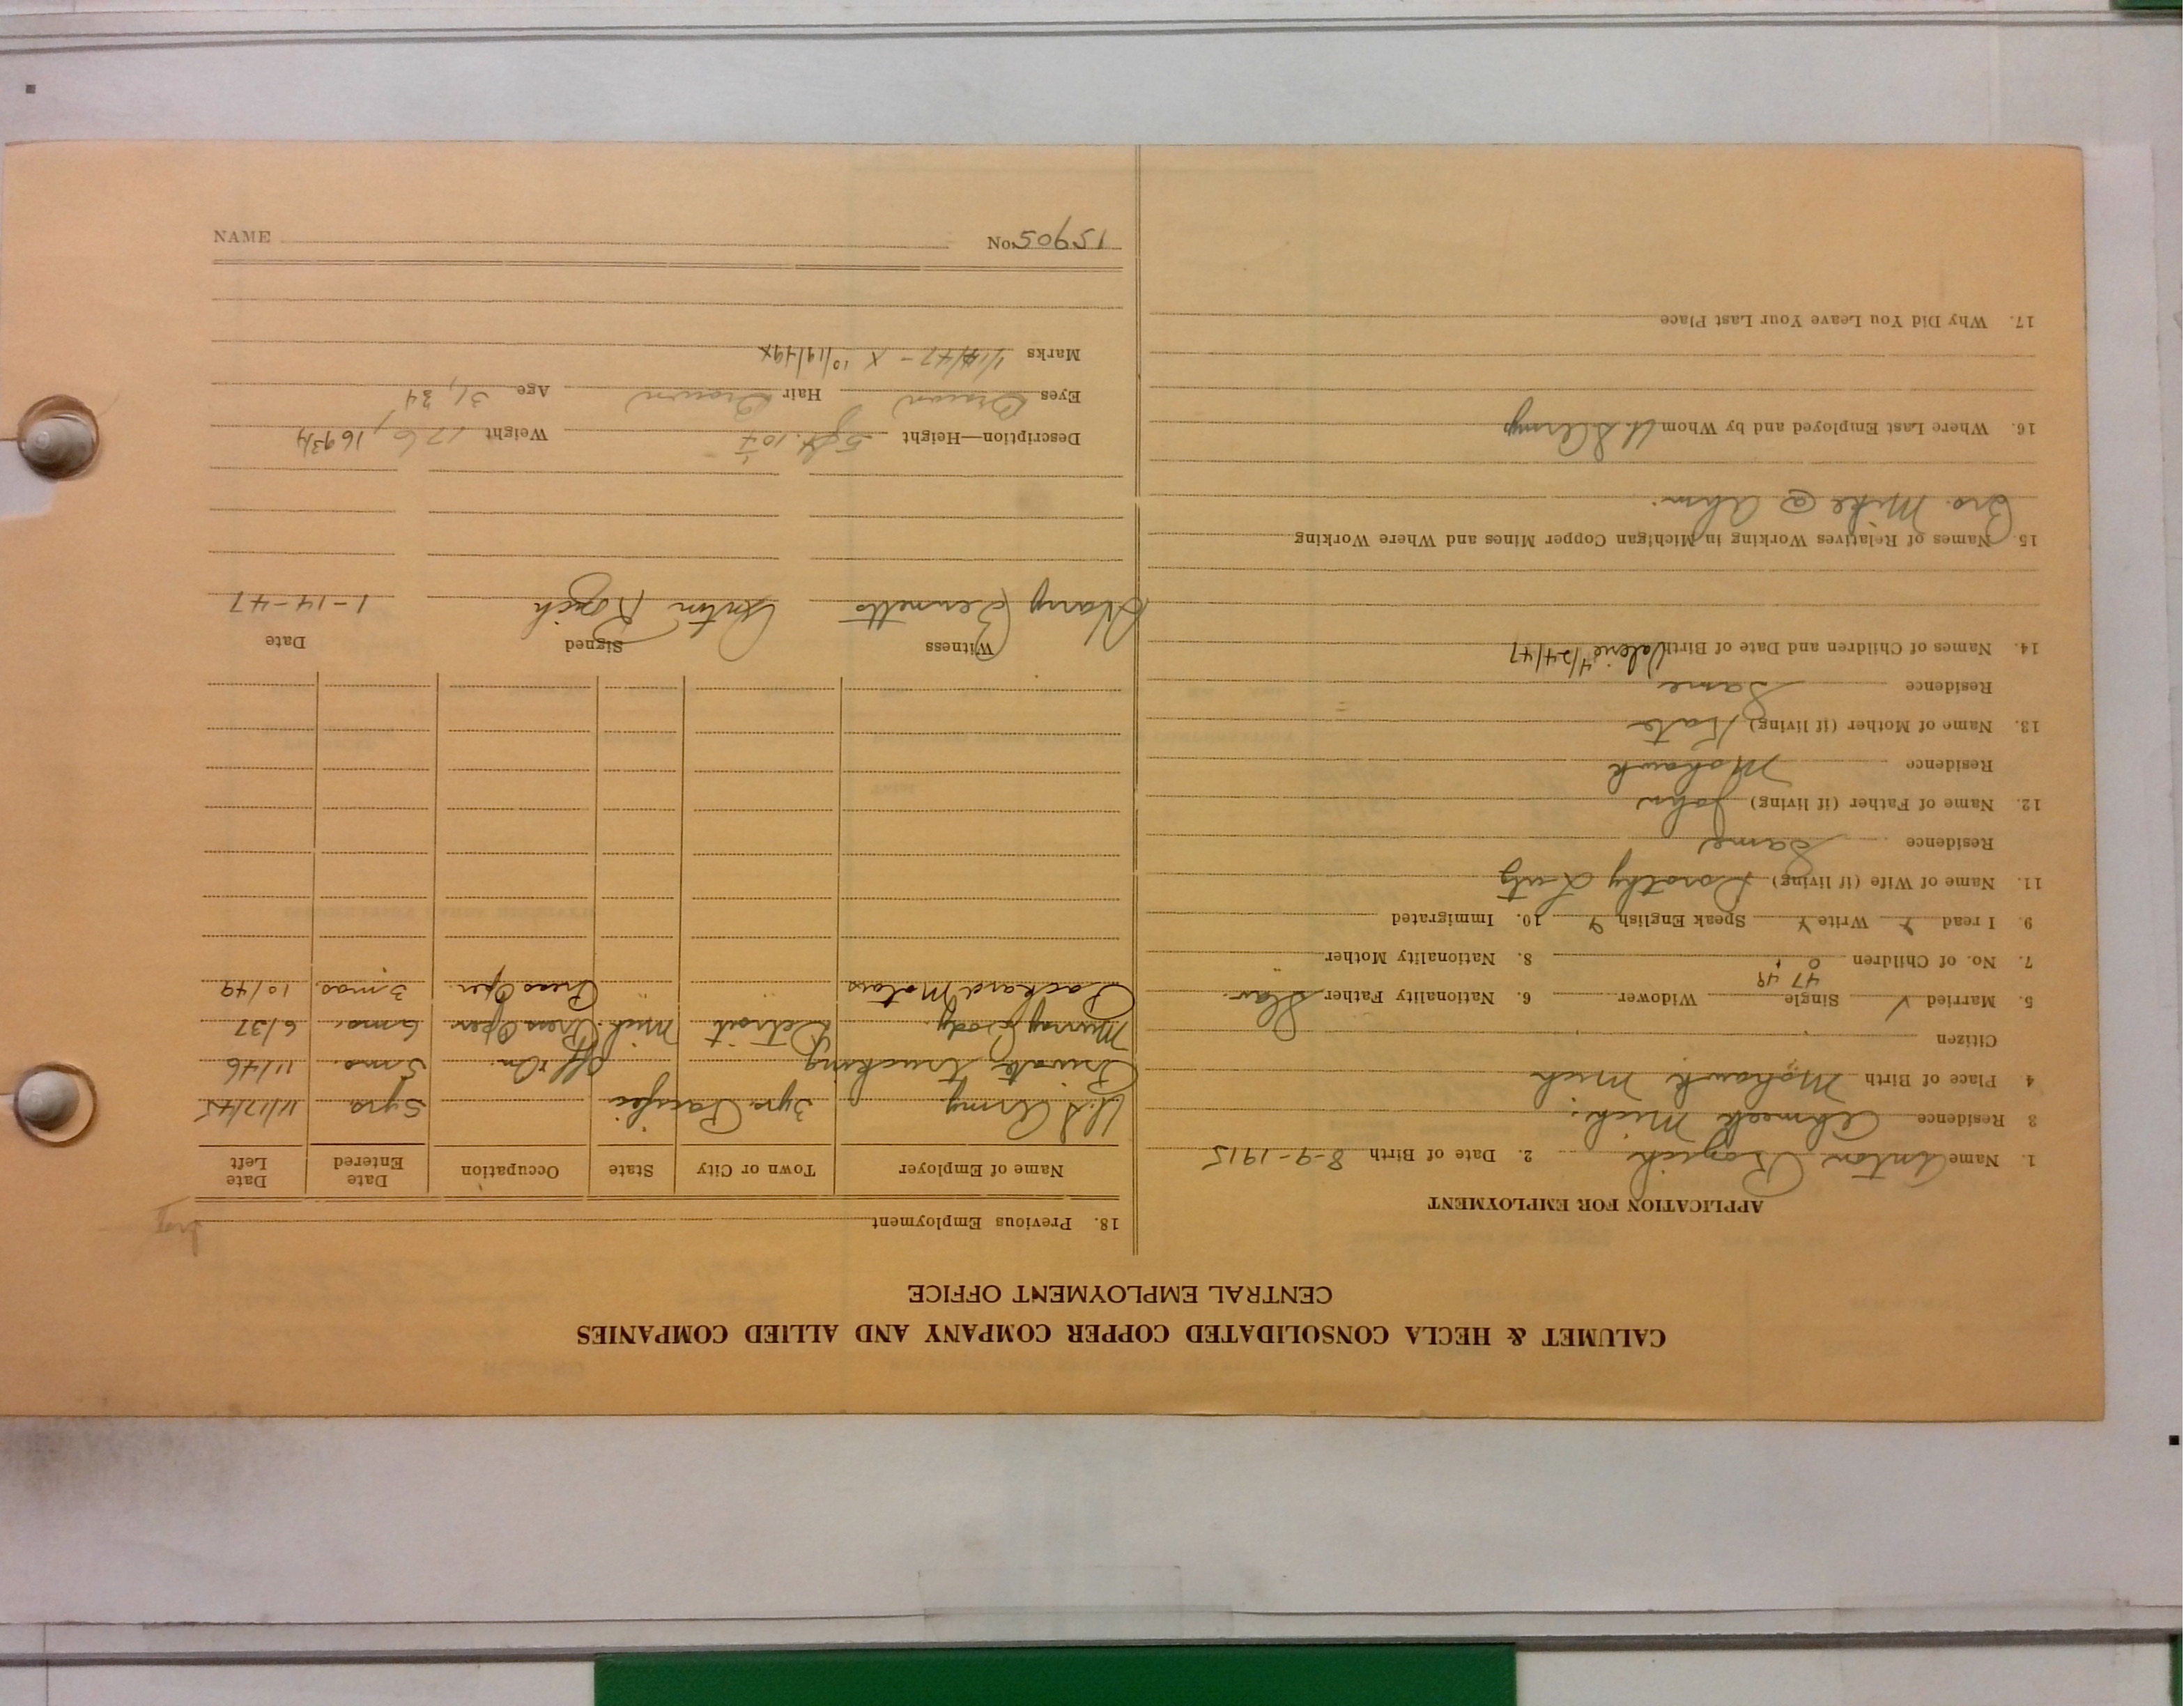 CALUMET & HECLA CONSOLIDATED COPPER COMPANY AND ALLIED COMPANIES
CENTRAL EMPLOYMENT OFFICE
APPLICATION FOR EMPLOYMENT
1. Name Anton Rozich 2. Date of Birth 8-9-1915
3 Residence Ahmeek Mich.
4 Place of Birth Mohawk Mich
Citizen
5. Married ✓ Single Widower 6. Nationality Father Slav.
47 49
7. No. of Children 0 1 8. Nationality Mother "
9. I read Y Write Y Speak English Y 10. Immigrated
11. Name of Wife (if living) Dorothy Lutz
Residence Same
12. Name of Father (if living) John
Residence Mohawk
13. Name of Mother (if living) Kate
Residence Same
14. Names of Children and Date of Birth Valerie 4/24/47
15. Names of Relatives Working in Michigan Copper Mines and Where Working
Bro. Mike @ Ahm.
16. Where Last Employed and by Whom U.S. Army
17. Why Did You Leave Your Last Place
18. Previous Employment
Name of Employer Town or City State Occupation Date Entered Date Left
U.S Army 3yrs Pacific 5yrs 11/17/45
Private trucking Off & On. 5 mo. 11/46
Murray Body Detroit Mich. Press Oper 6 mo. 6/37
Packard Motors " " Press Oper. 3 mos. 10/49
Witness Signed Date
Harry Bennetts Anton Rozich 1-14-47
Description—Height 5 ft. 10 1/2 Weight 176, 169 3/4
Eyes Brown Hair Brown Age 31, 34
Marks 1/14/47 - X 10/19/49X
No. 15905 NAME